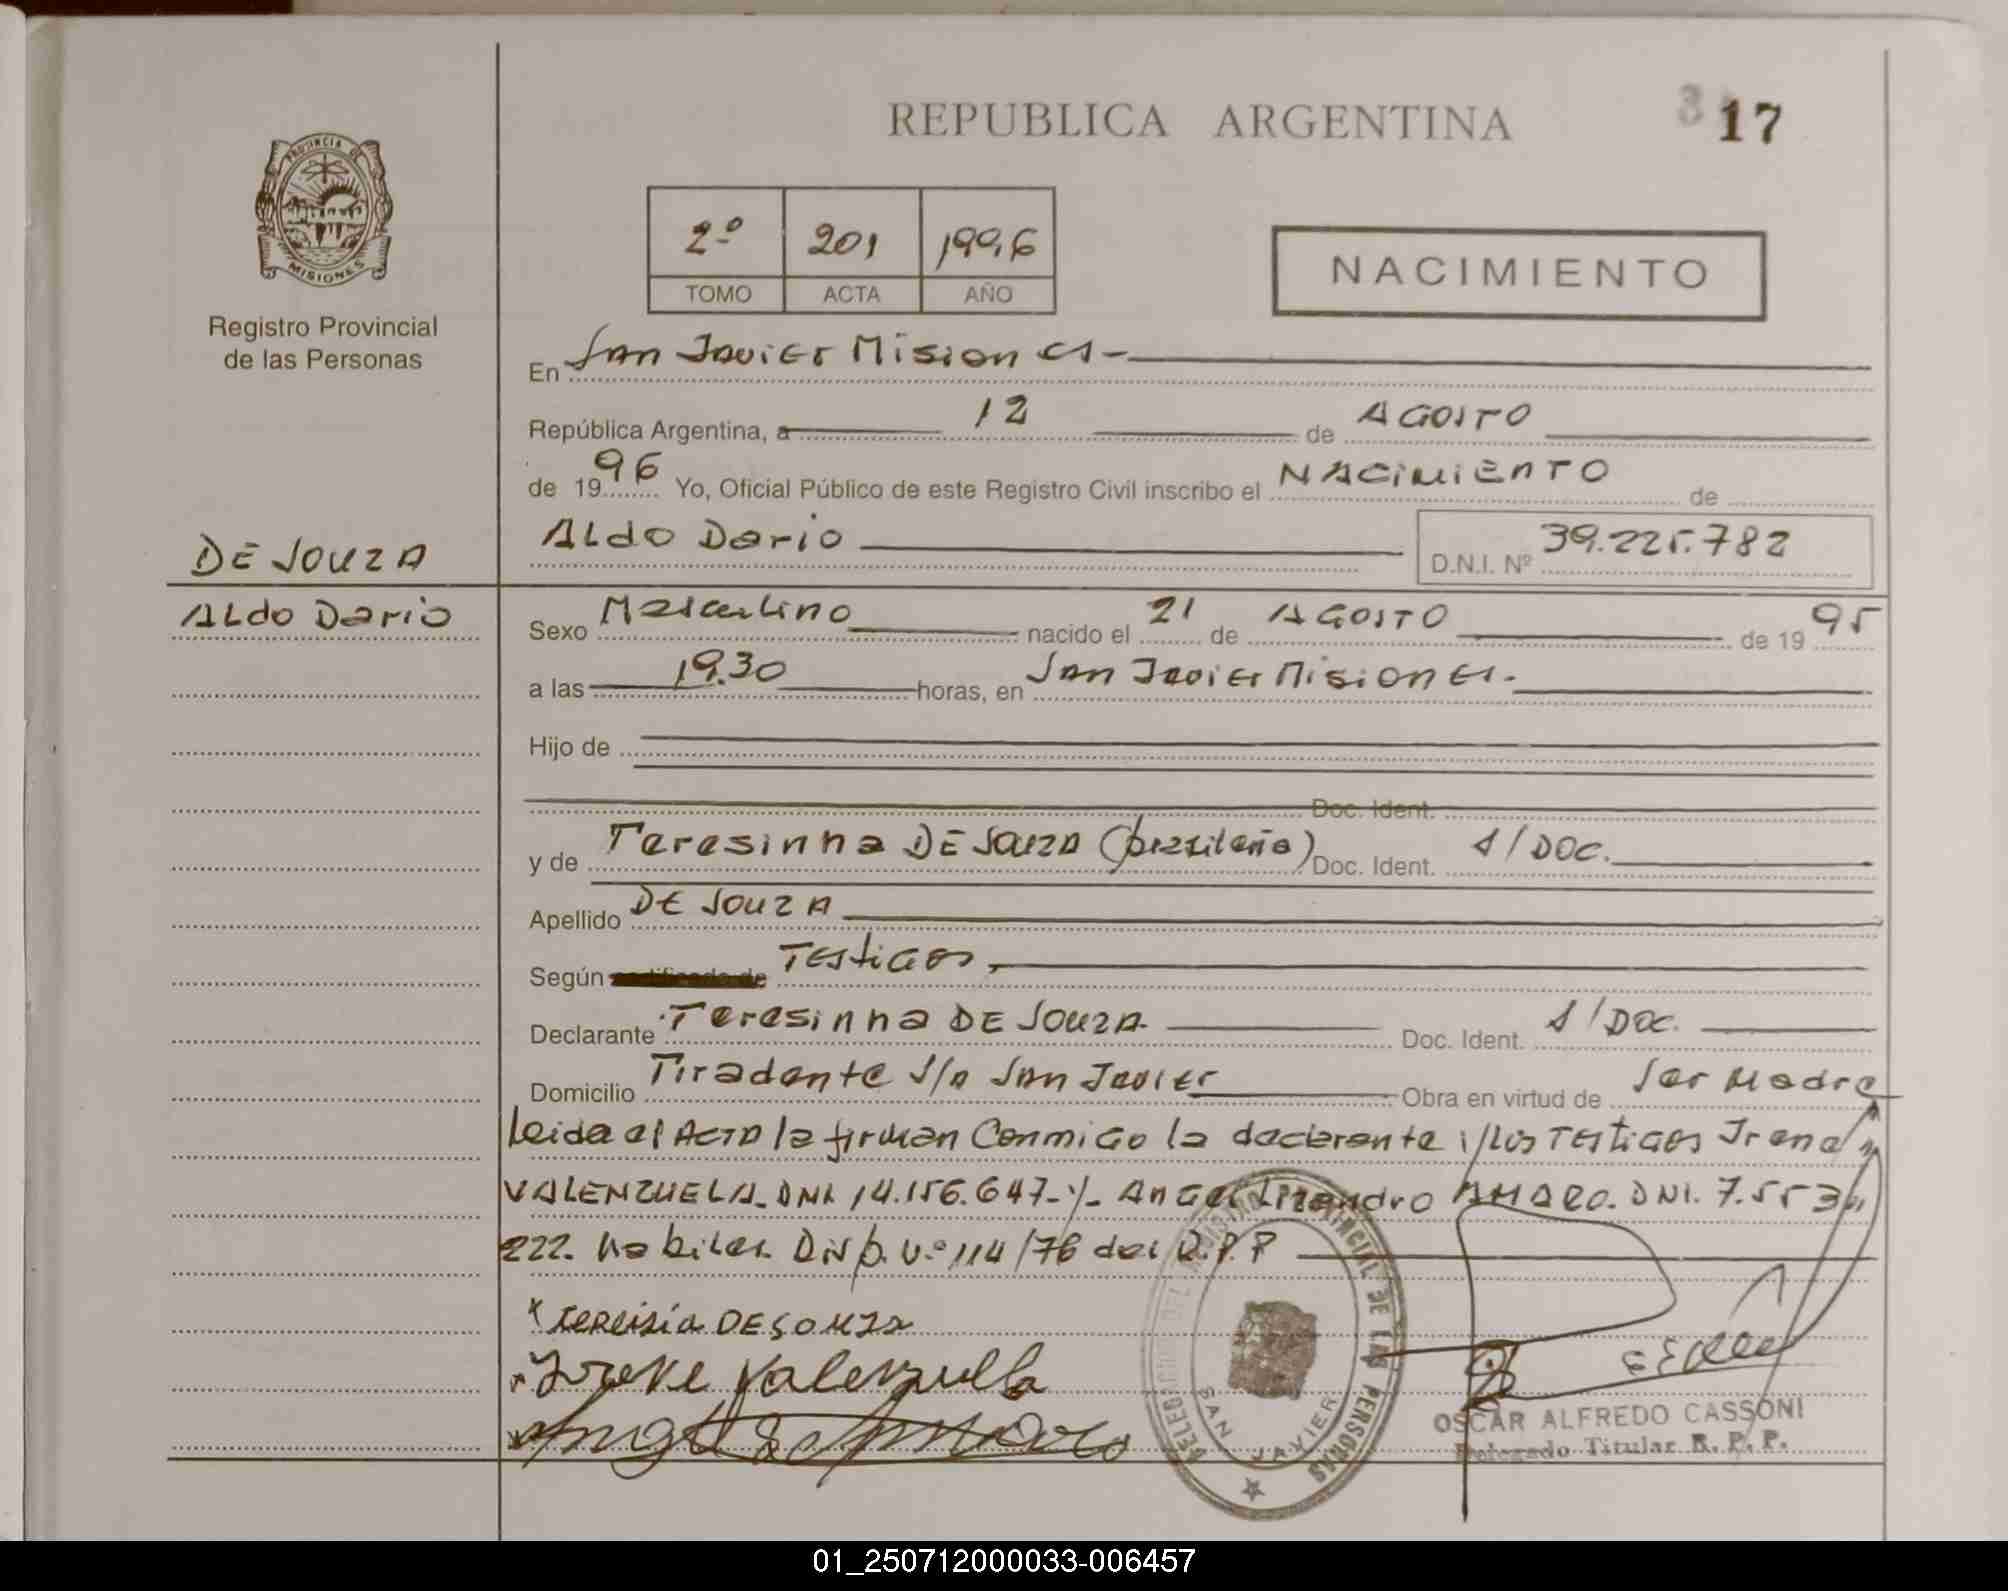 REPUBLICA ARGENTINA
3 17
PROVINCIA DE
MISIONES
Registro Provincial
de las Personas
2º 201 1996
TOMO ACTA AÑO
NACIMIENTO
En San Javier Misiones-
República Argentina, a 12 de AGOSTO
de 1996 Yo, Oficial Público de este Registro Civil inscribo el NACIMIENTO de
DE SOUZA
Aldo Dario
Aldo Dario D.N.I. Nº 39.225.782
Sexo Masculino nacido el 21 de AGOSTO de 1995
a las 19.30 horas, en San Javier Misiones.
Hijo de
Doc. Ident.
y de Teresinha DE SOUZA (brasileña) Doc. Ident. S/DOC.
Apellido DE SOUZA
Según certificado de Testigos,
Declarante Teresinha DE SOUZA. Doc. Ident. S/DOC.
Domicilio Tiradente S/n San Javier Obra en virtud de Ser Madre
Leida el Acta la firman Conmigo la declarante y/los Testigos Irene
VALENZUELA. DNI. 14.156.647-y- Angel Lizandro AMARO. DNI. 7.553.
222. Habiles. Disp. N.º 114/76 del R.P.P
x Tereisia DE SOUZA
x Irene Valenzuella
DELEGACION DEL REGISTRO PROVINCIAL DE LAS PERSONAS
SAN JAVIER
OSCAR ALFREDO CASSONI
Delegado Titular R. P. P.
01_250712000033-006457